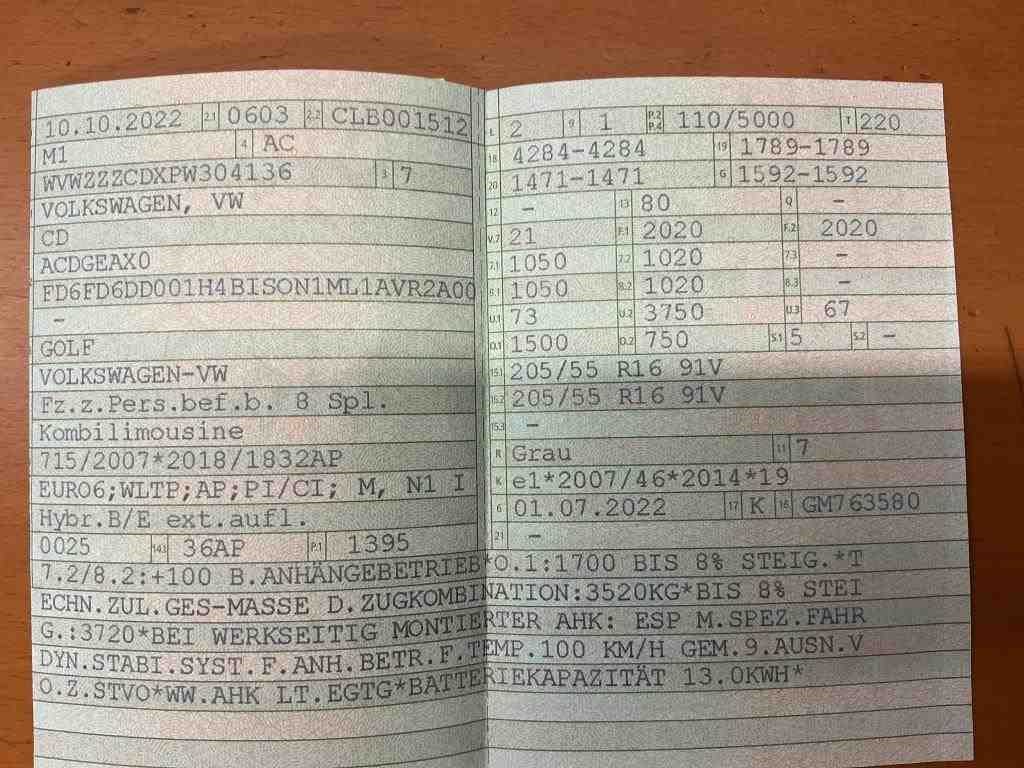 10.10.2022 2.1 0603 2.2 CLB001512
M1 4 AC
WVWZZZCDXPW304136 3 7
VOLKSWAGEN, VW
CD
ACDGEAX0
FD6FD6DD001H4BISON1ML1AVR2A00
–
GOLF
VOLKSWAGEN-VW
Fz.z.Pers.bef.b. 8 Spl.
Kombilimousine
715/2007*2018/1832AP
EURO6;WLTP;AP;PI/CI; M, N1 I
Hybr.B/E ext.aufl.
0025 14.1 36AP P.1 1395
L 2 9 1 P.2 P.4 110/5000 T 220
18 4284-4284 19 1789-1789
20 1471-1471 G 1592-1592
12 – 13 80 Q –
V.7 21 F.1 2020 F.2 2020
7.1 1050 7.2 1020 7.3 –
8.1 1050 8.2 1020 8.3 –
U.1 73 U.2 3750 U.3 67
O.1 1500 O.2 750 S.1 5 S.2 –
15.1 205/55 R16 91V
15.2 205/55 R16 91V
15.3 –
R Grau 11 7
K e1*2007/46*2014*19
6 01.07.2022 17 K 16 GM763580
21 –
7.2/8.2:+100 B.ANHÄNGEBETRIEB*O.1:1700 BIS 8% STEIG.*T
ECHN.ZUL.GES-MASSE D.ZUGKOMBINATION:3520KG*BIS 8% STEI
G.:3720*BEI WERKSEITIG MONTIERTER AHK: ESP M.SPEZ.FAHR
DYN.STABI.SYST.F.ANH.BETR.F.TEMP.100 KM/H GEM.9.AUSN.V
O.Z.STVO*WW.AHK LT.EGTG*BATTERIEKAPAZITÄT 13.0KWH*